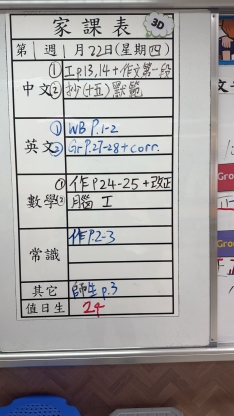 家課表 3D
第 週 1月22日(星期四)
中文 ① 工p13,14+作文第一段
② 抄(十五)默範
英文 ① WB P.1-2
② Gr P.27-28+corr.
數學 ① 作P24-25+改正
② 腦 工
常識 作P.2-3
其它 師生 p.3
值日生 24
Gro
Group